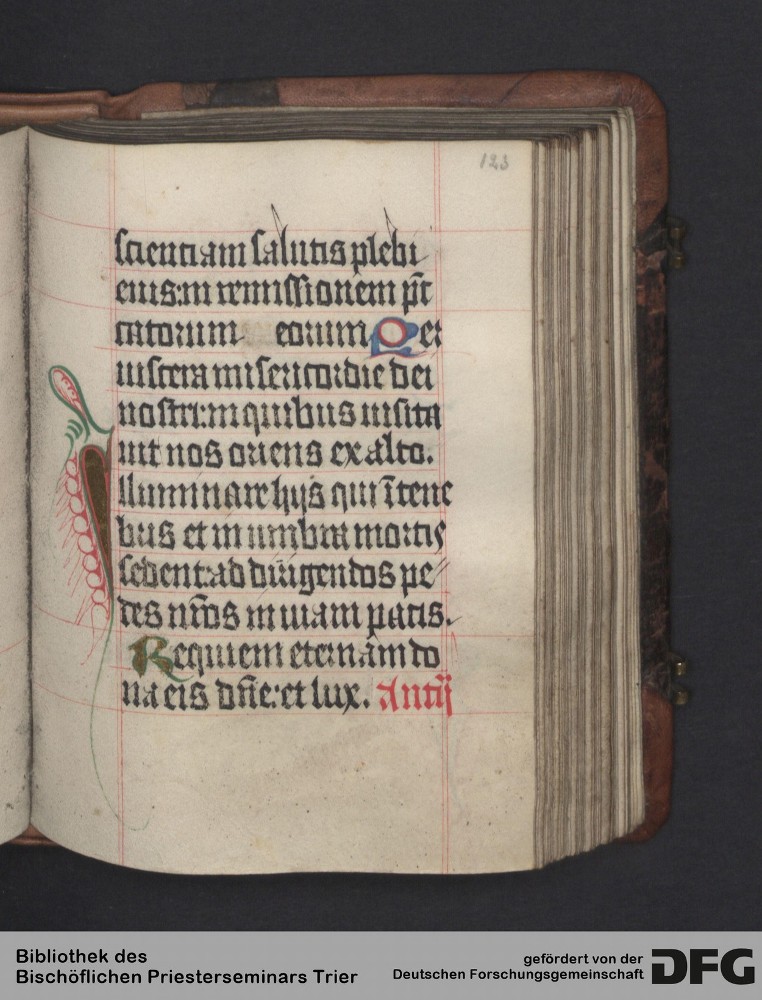 123
scientiam salutis plebi
eius: in remissionem pec̄
catorum eorum Per
uiscera misericordie dei
nostri: in quibus uisita
uit nos oriens ex alto.
Illuminare hijs qui ī tene
bris et in umbra mortis
sedent: ad dirigendos pe
des nr̄os in uiam pacis.
Requiem eternam do
na eis dn̄e: et lux. Antij
Bibliothek des
Bischöflichen Priesterseminars Trier
gefördert von der
Deutschen Forschungsgemeinschaft
DFG